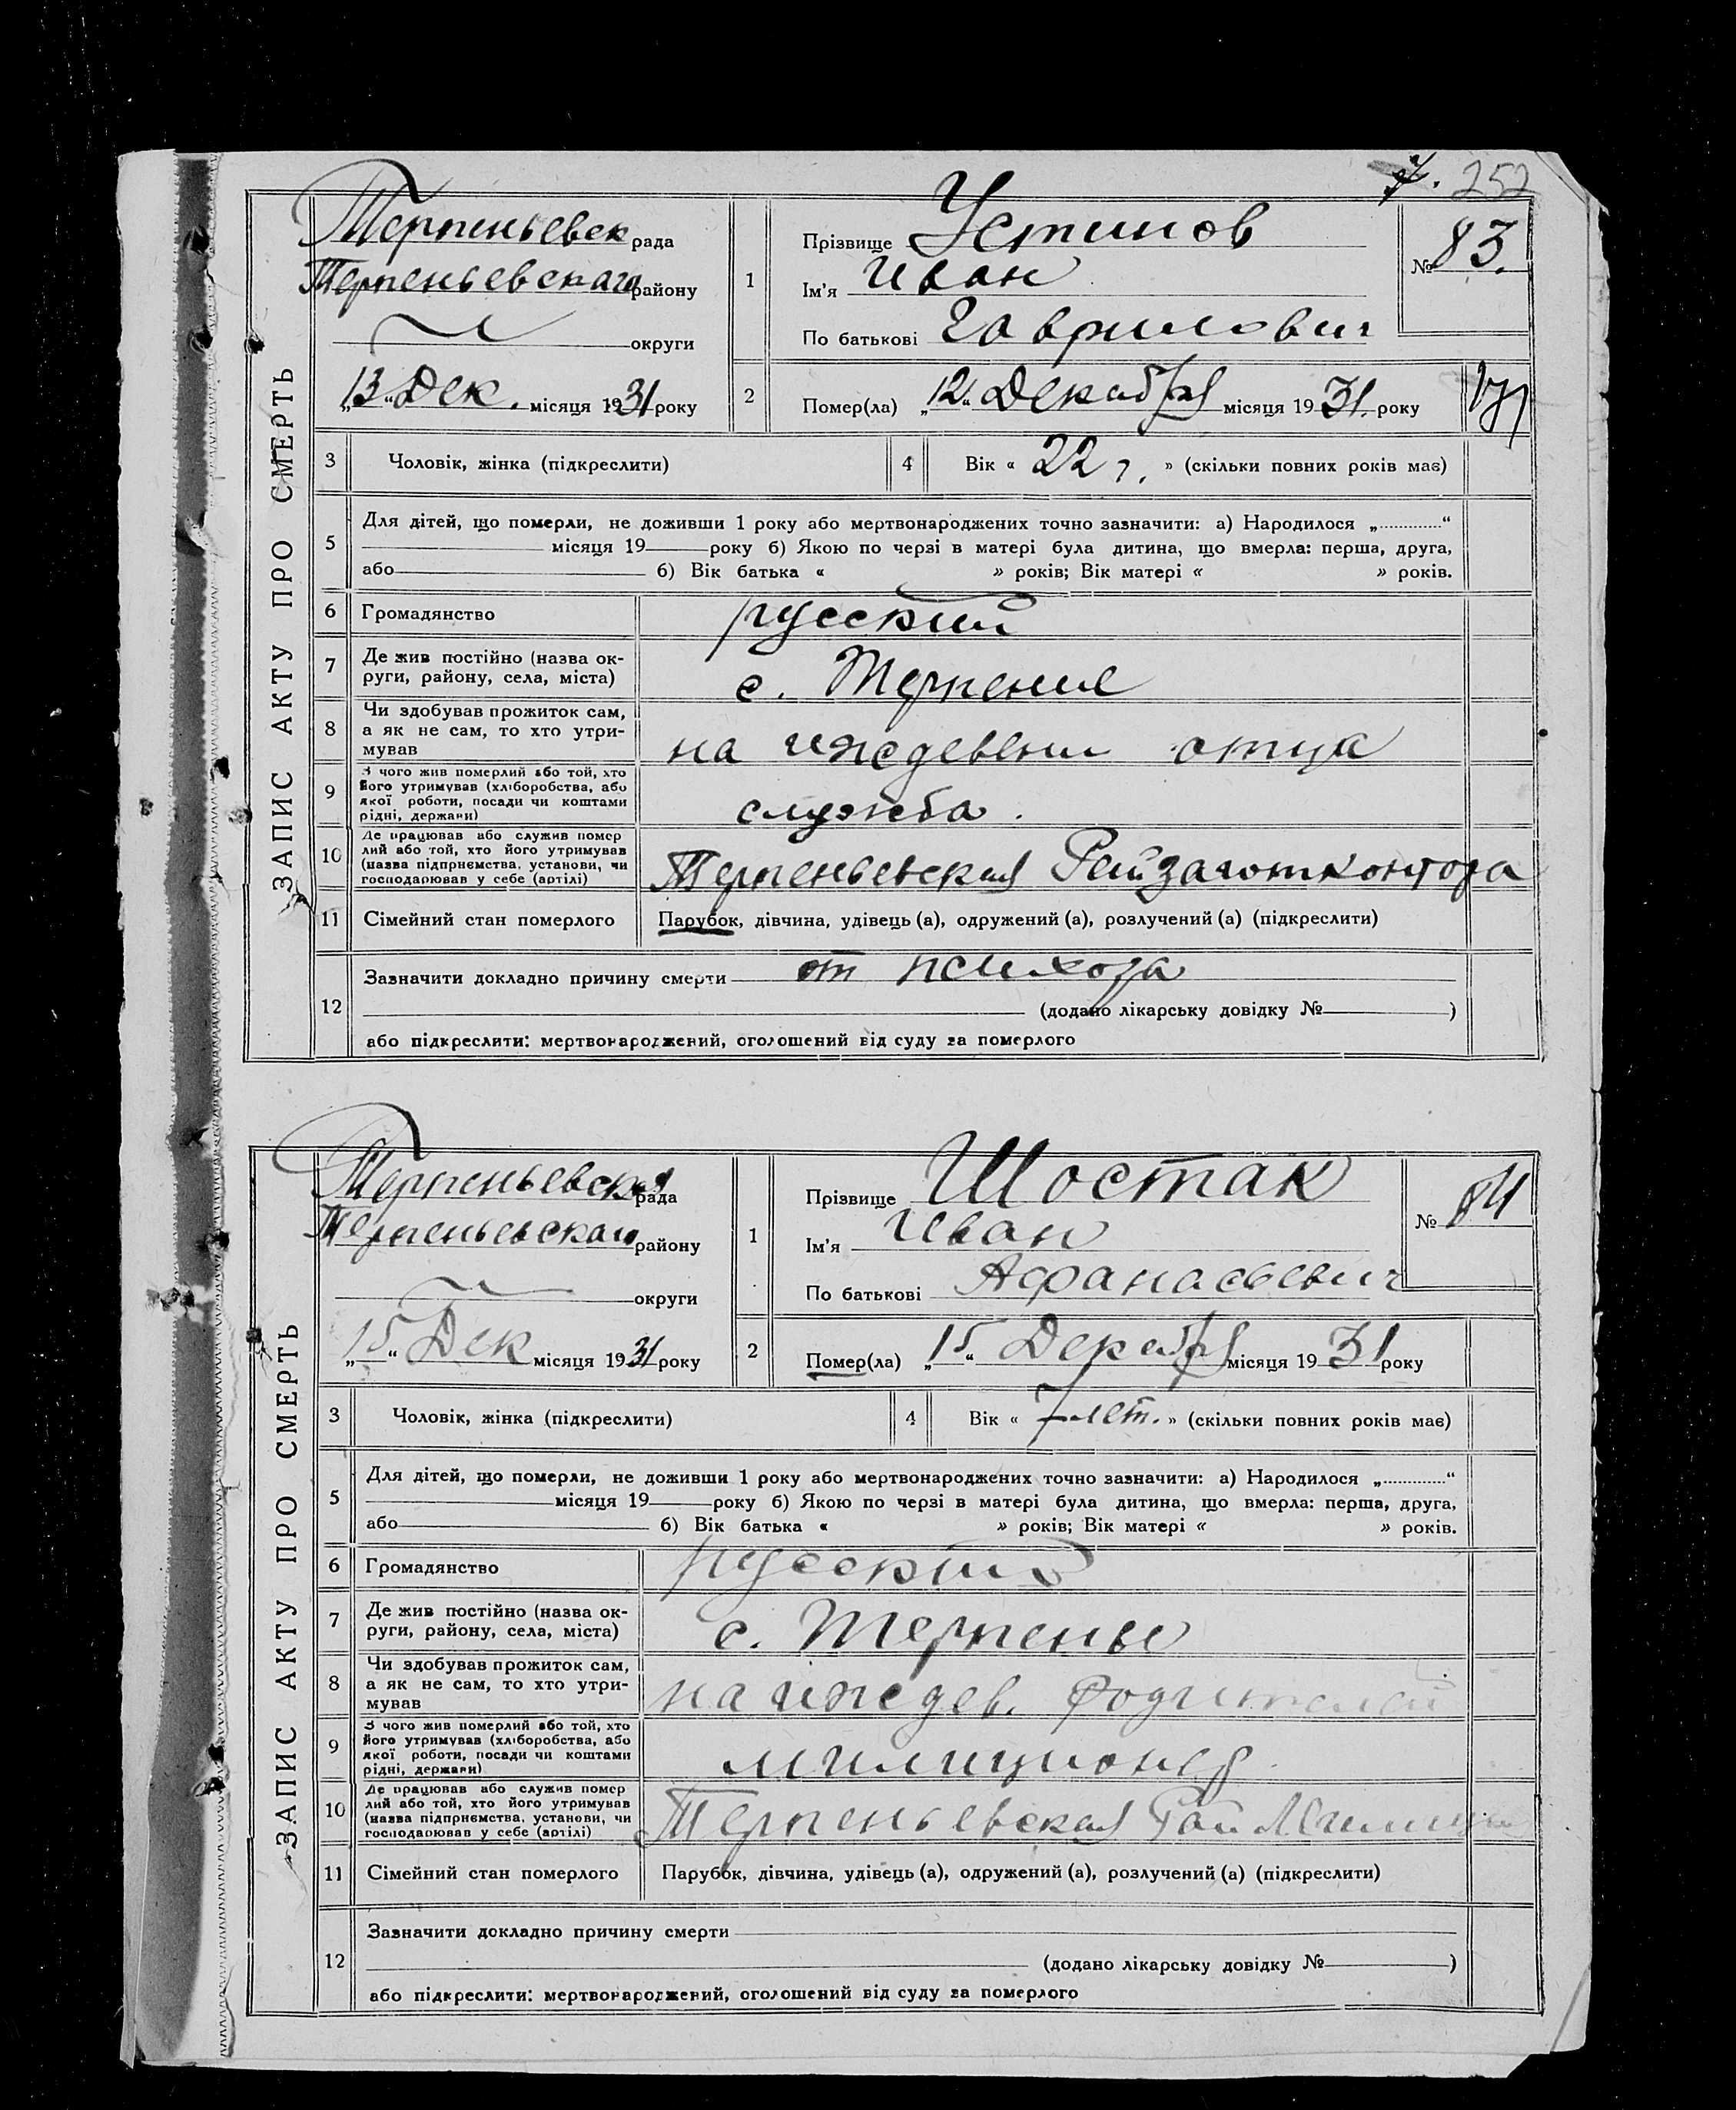 252
Терпеньевск рада
Терпеньевскаго району
округи
„13“ Дек. місяця 1931 року
1
Прізвище Устинов
Ім'я Иван
По батькові Гаврилович
№ 83.
2
Помер(ла) „12“ Декабря місяця 1931. року
3 Чоловік, жінка (підкреслити)
4 Вік « 22 г. » (скільки повних років має)
ЗАПИС АКТУ ПРО СМЕРТЬ
5 Для дітей, що померли, не доживши 1 року або мертвонароджених точно зазначити: а) Народилося „............“
місяця 19 року б) Якою по черзі в матері була дитина, що вмерла: перша, друга,
або б) Вік батька « » років; Вік матері « » років.
6 Громадянство русский
7 Де жив постійно (назва ок-
руги, району, села, міста) с. Терпение
8 Чи здобував прожиток сам,
а як не сам, то хто утри-
мував на иждевении отца
9 З чого жив померлий або той, хто
його утримував (хліборобства, або
якої роботи, посади чи коштами
рідні, держави) служба.
10 Де працював або служив помер
лий або той, хто його утримував
(назва підприємства, установи, чи
господарював у себе (артілі) Терпеньевская Райзаготконтора
11 Сімейний стан померлого Парубок, дівчина, удівець (а), одружений (а), розлучений (а) (підкреслити)
12 Зазначити докладно причину смерти от психоза
(додано лікарську довідку № )
або підкреслити: мертвонароджений, оголошений від суду за померлого
Терпеньевская рада
Терпеньевскаго району
округи
„15“ Дек місяця 1931 року
1
Прізвище Шостак
Ім'я Иван
По батькові Афанасьевич
№ 84
2
Помер(ла) „15“ Декабря місяця 1931 року
3 Чоловік, жінка (підкреслити)
4 Вік « 7 лет. » (скільки повних років має)
ЗАПИС АКТУ ПРО СМЕРТЬ
5 Для дітей, що померли, не доживши 1 року або мертвонароджених точно зазначити: а) Народилося „............“
місяця 19 року б) Якою по черзі в матері була дитина, що вмерла: перша, друга,
або б) Вік батька « » років; Вік матері « » років.
6 Громадянство русский
7 Де жив постійно (назва ок-
руги, району, села, міста) с. Терпенье
8 Чи здобував прожиток сам,
а як не сам, то хто утри-
мував на иждев. родителей
9 З чого жив померлий або той, хто
його утримував (хліборобства, або
якої роботи, посади чи коштами
рідні, держави) милиционер
10 Де працював або служив помер
лий або той, хто його утримував
(назва підприємства, установи, чи
господарював у себе (артілі) Терпеньевская Рай Милиция
11 Сімейний стан померлого Парубок, дівчина, удівець (а), одружений (а), розлучений (а) (підкреслити)
12 Зазначити докладно причину смерти
(додано лікарську довідку № )
або підкреслити: мертвонароджений, оголошений від суду за померлого